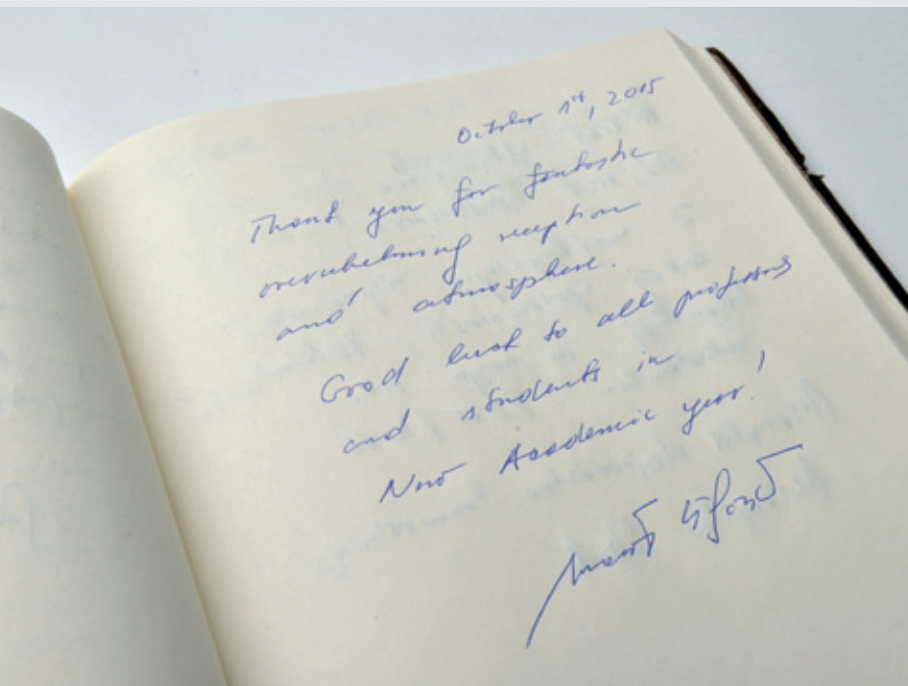 October 1st, 2015
Thank you for fantastic
overwhelming reception
and atmosphere.
Good luck to all professors
and students in
New Academic year!